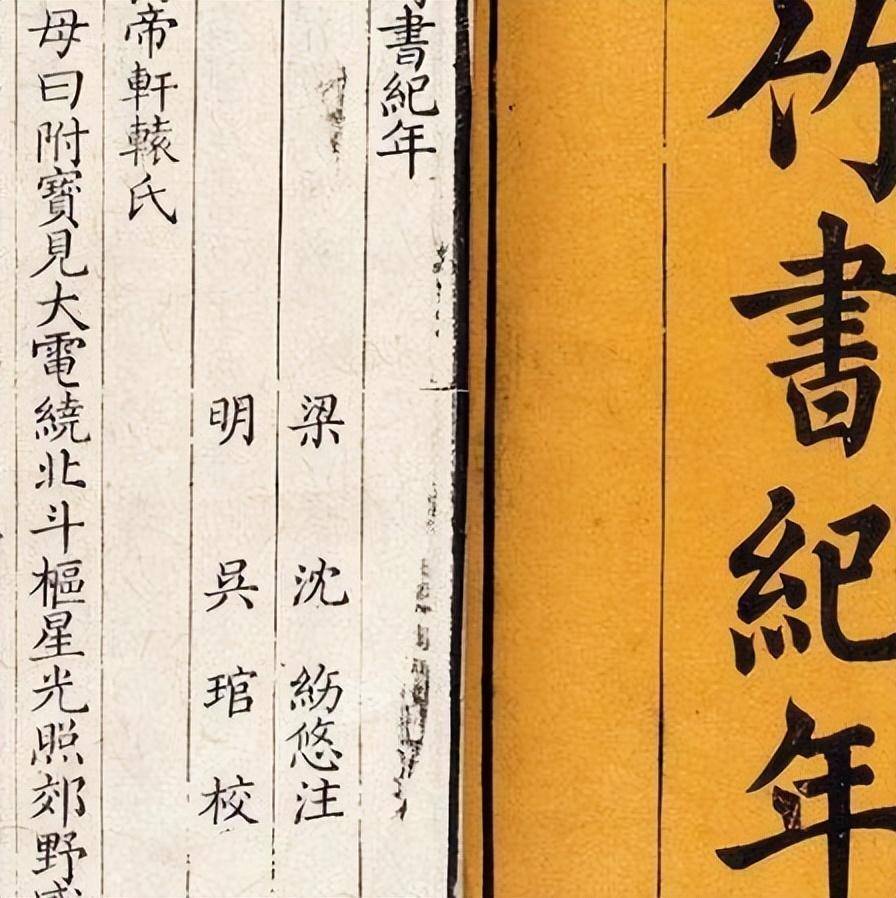 竹書紀年
書紀年
梁 沈 悠注
明 吳 琯 校
帝軒轅氏
母曰附寶見大電繞北斗樞星光照郊野